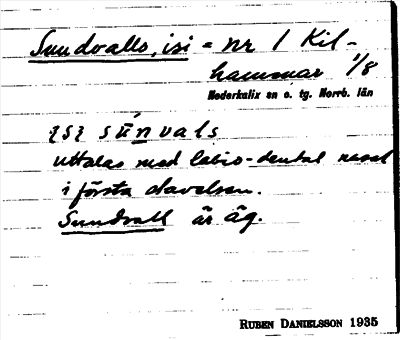 Sundvalls, isi = nr 1 Kil-
hammar 1/8
Nederkalix sn o. tg. Norrb. län
sún vals
uttalas med labio-dental nasal
i första stavelsen.
Sundvall är äg.
RUBEN DANIELSSON 1935